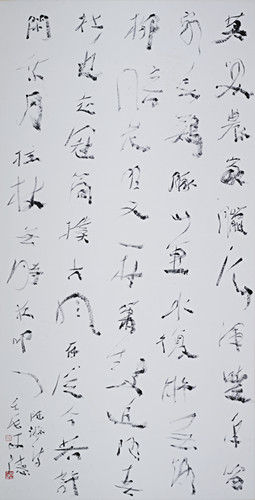 莫笑農家臘酒渾豐年留
客足雞豚山重水復疑無路
柳暗花明又一村簫鼓追隨春
社近衣冠簡樸古風存從今若許
閑乘月拄杖無時夜叩門
陸游詩